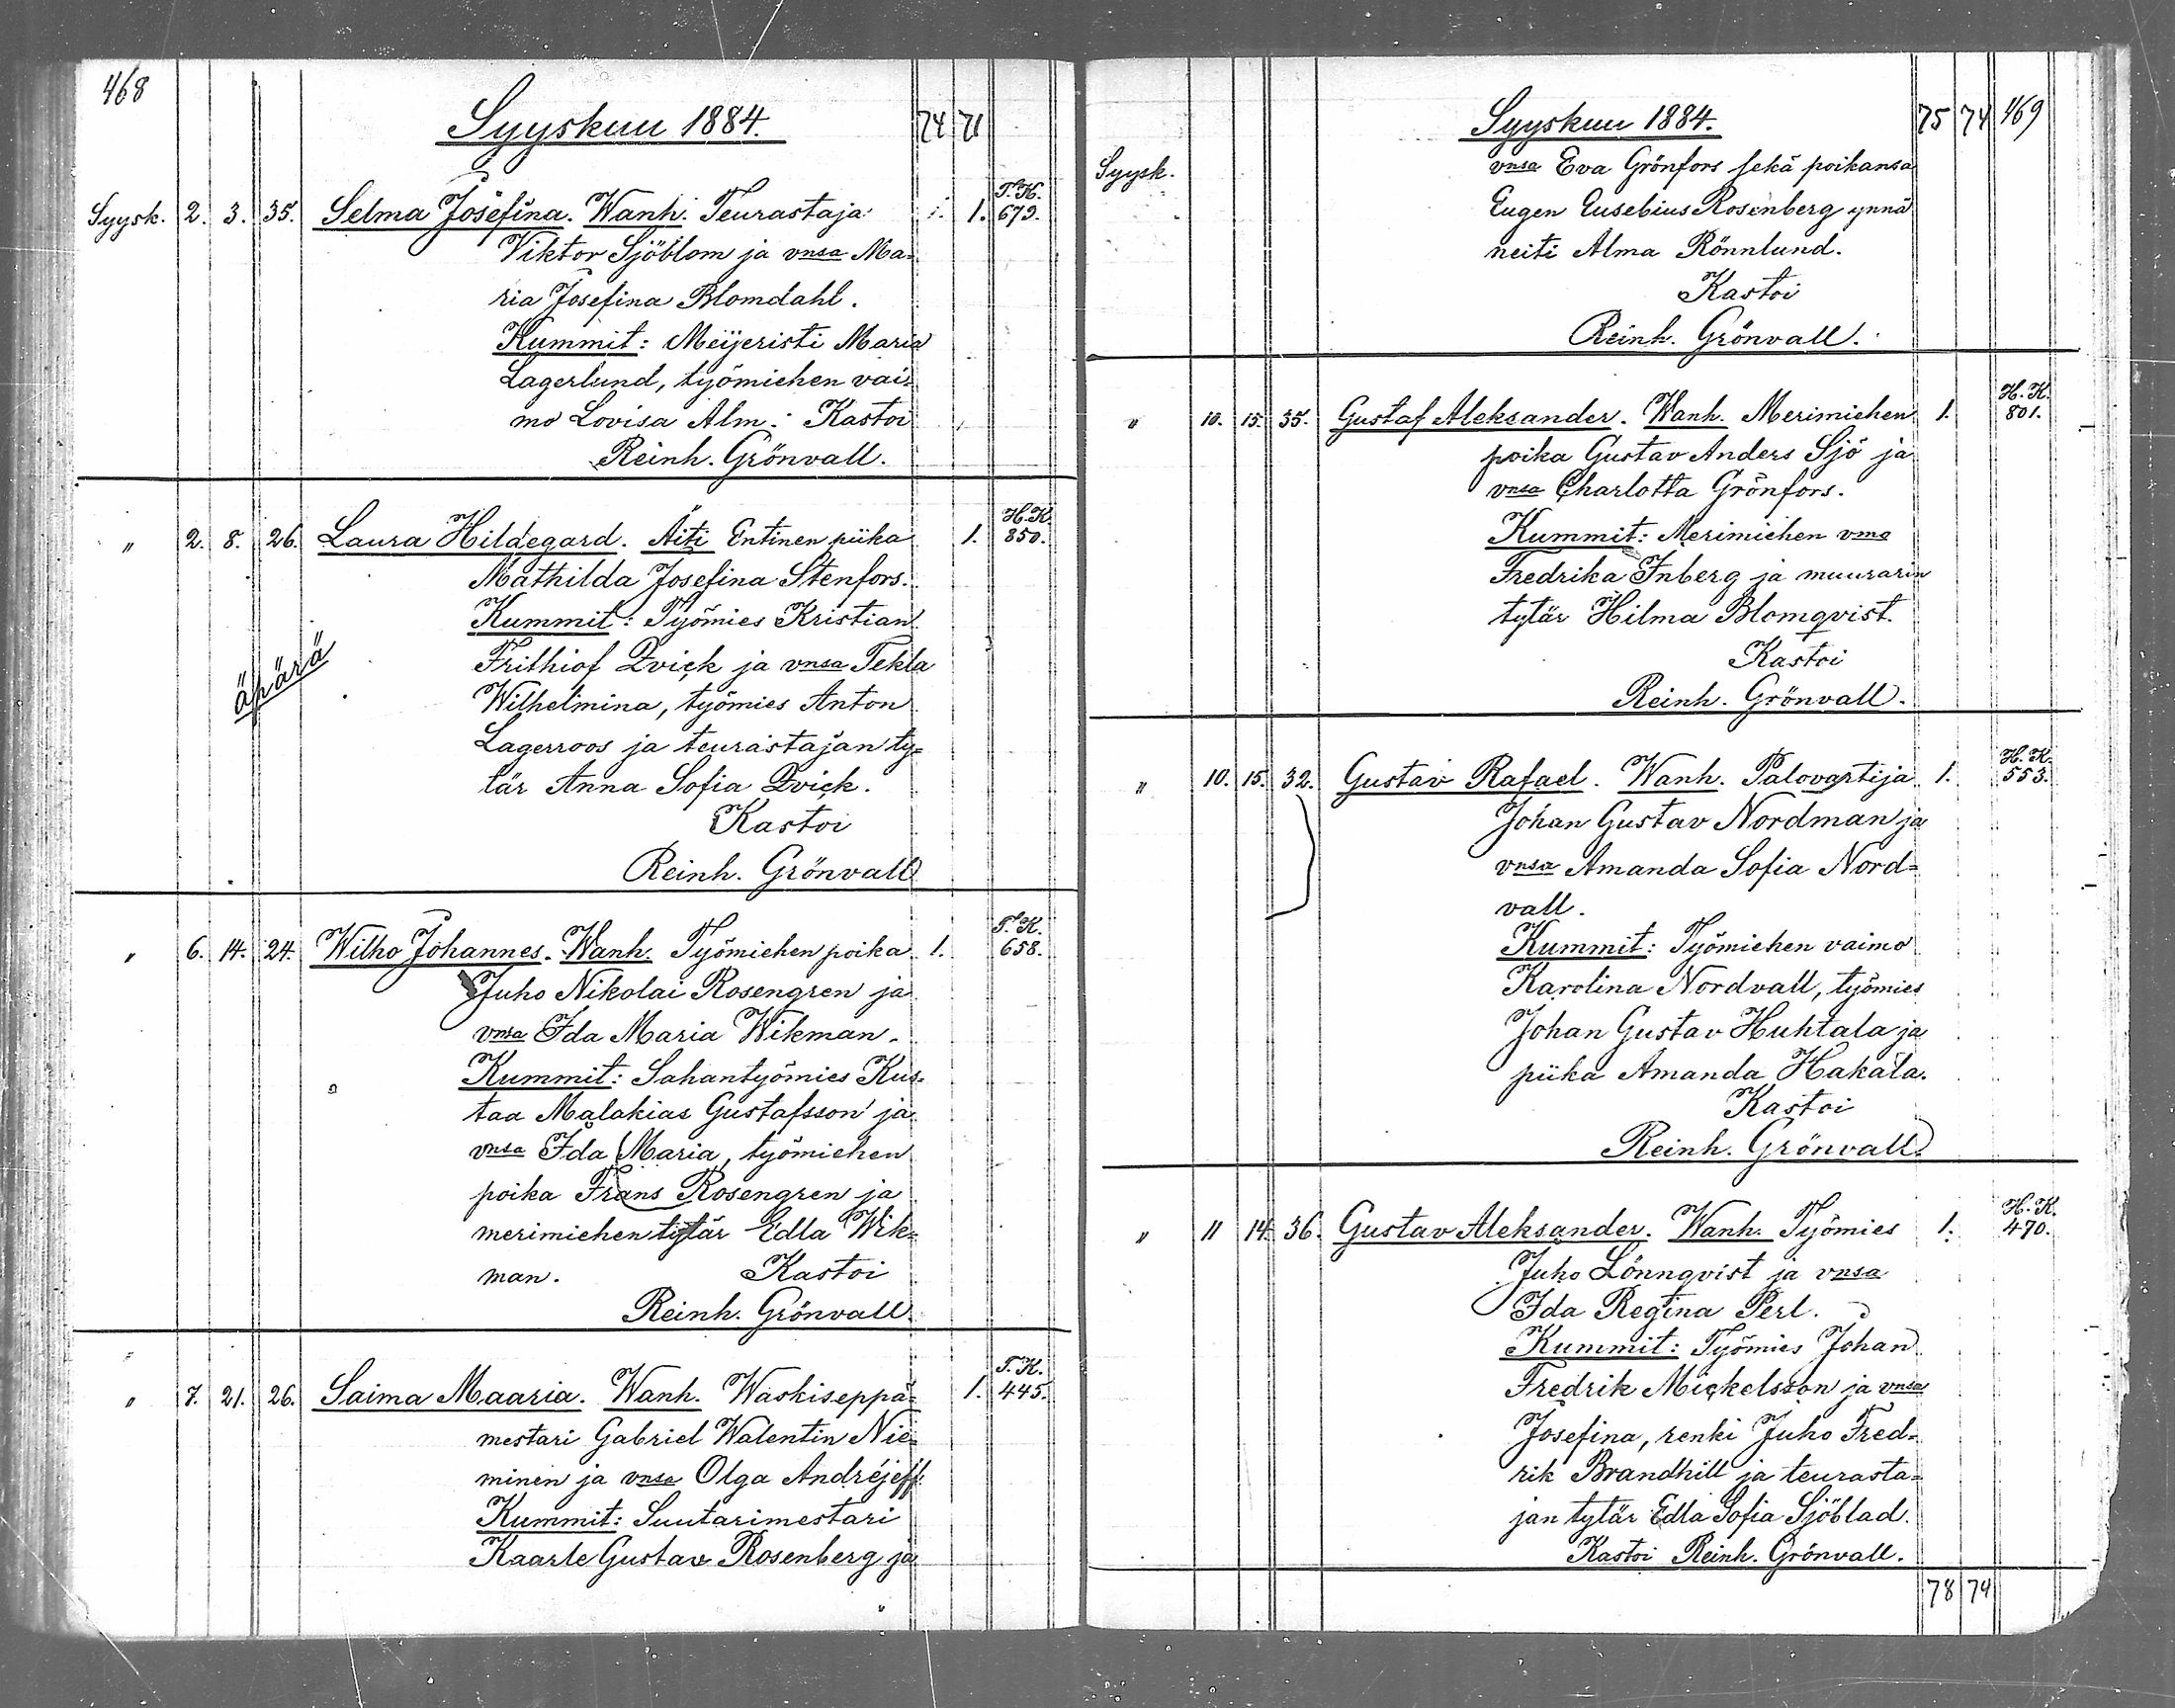 468
Syyskuu 1884. 74 71
Syysk. 2. 3. 35. Selma Josefina. Wanh. Teurastaja 1. T.K. 679.
Viktor Sjöblom ja vnsa Ma=
ria Josefina Blomdahl.
Kummit: Meijeristi Maria
Lagerlund, työmiehen vai=
mo Lovisa Alm. Kastoi
Reinh. Grönvall.
" 2. 8. 26. Laura Hildegard. Äiti Entinen piika 1. H.K. 850.
Mathilda Josefina Stenfors.
Kummit: Työmies Kristian
äpärä
Frithiof Qvick ja vnsa Tekla
Wilhelmina, työmies Anton
Lagerroos ja teurastajan ty=
tär Anna Sofia Qvick.
Kastoi
Reinh. Grönvall
" 6. 14. 24. Wilho Johannes. Wanh. Työmiehen poika 1. T.K. 658.
Juho Nikolai Rosengren ja
vnsa Ida Maria Wikman.
Kummit: Sahantyömies Kus=
taa Malakias Gustafsson ja
vnsa Ida Maria, työmiehen
poika Frans Rosengren ja
merimiehen tytär Edla Wik=
man. Kastoi
Reinh. Grönvall.
" 7. 21. 26. Saima Maaria. Wanh. Waskiseppä= 1. T.K. 445.
mestari Gabriel Walentin Nie=
minen ja vnsa Olga Andrejeff.
Kummit: Suutarimestari
Kaarle Gustav Rosenberg ja
Syyskuu 1884. 75 74 469
Syysk. vnsa Eva Grönfors sekä poikansa
Eugen Eusebius Rosenberg ynnä
neiti Alma Rönnlund.
Kastoi
Reinh. Grönvall.
" 10. 15. 35. Gustaf Aleksander. Wanh. Merimiehen 1. H.K. 801.
poika Gustav Anders Sjö ja
vnsa Charlotta Grönfors.
Kummit: Merimiehen vmo
Fredrika Inberg ja muurarin
tytär Hilma Blomqvist.
Kastoi
Reinh. Grönvall.
" 10. 15. 32. Gustav Rafael. Wanh. Palovartija 1. H.K. 553.
Johan Gustav Nordman ja
vnsa Amanda Sofia Nord=
vall.
Kummit: Työmiehen vaimo
Karolina Nordvall, työmies
Johan Gustav Huhtala ja
piika Amanda Hakala.
Kastoi
Reinh. Grönvall.
" 11 14. 36. Gustav Aleksander. Wanh. Työmies 1. H.K. 470.
Juho Lönnqvist ja vnsa
Ida Regina Perl.
Kummit: Työmies Johan
Fredrik Mickelsson ja vnsa
Josefina, renki Juho Fred=
rik Brandhill ja teurasta=
jan tytär Edla Sofia Sjöblad.
Kastoi Reinh. Grönvall.
78 74